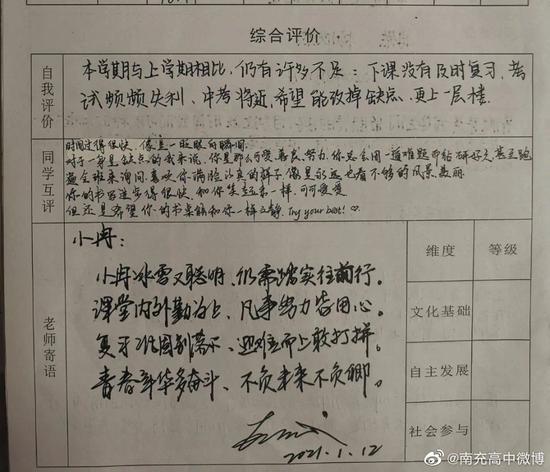 综合评价
自我评价
本学期与上学期相比，仍有许多不足：下课没有及时复习，考
试频频失利、中考将近，希望能改掉缺点、更上一层楼.
同学互评
时间过得很快，像是一眨眼的瞬间.
对于一身是缺点的我来说，你是那么可爱、善良、努力.你总会因一道难题而钻研好久甚至跑
遍全班来询问.喜欢你满脸认真的样子.像是永远也看不够的风景，美丽.
你的书写进步得很快、和你笑起来一样，可可爱爱
但还是希望你的书桌能和你一样文静. Try your best! ♡
老师寄语
小冉：
小冉冰雪又聪明、仍需踏实往前行。
课堂内外勤为上、凡事努力皆用心。
复习巩固别落下、迎难而上敢打拼。
青春年华多奋斗、不负未来不负卿。
2021.1.12
维度
等级
文化基础
自主发展
社会参与
@南充高中微博